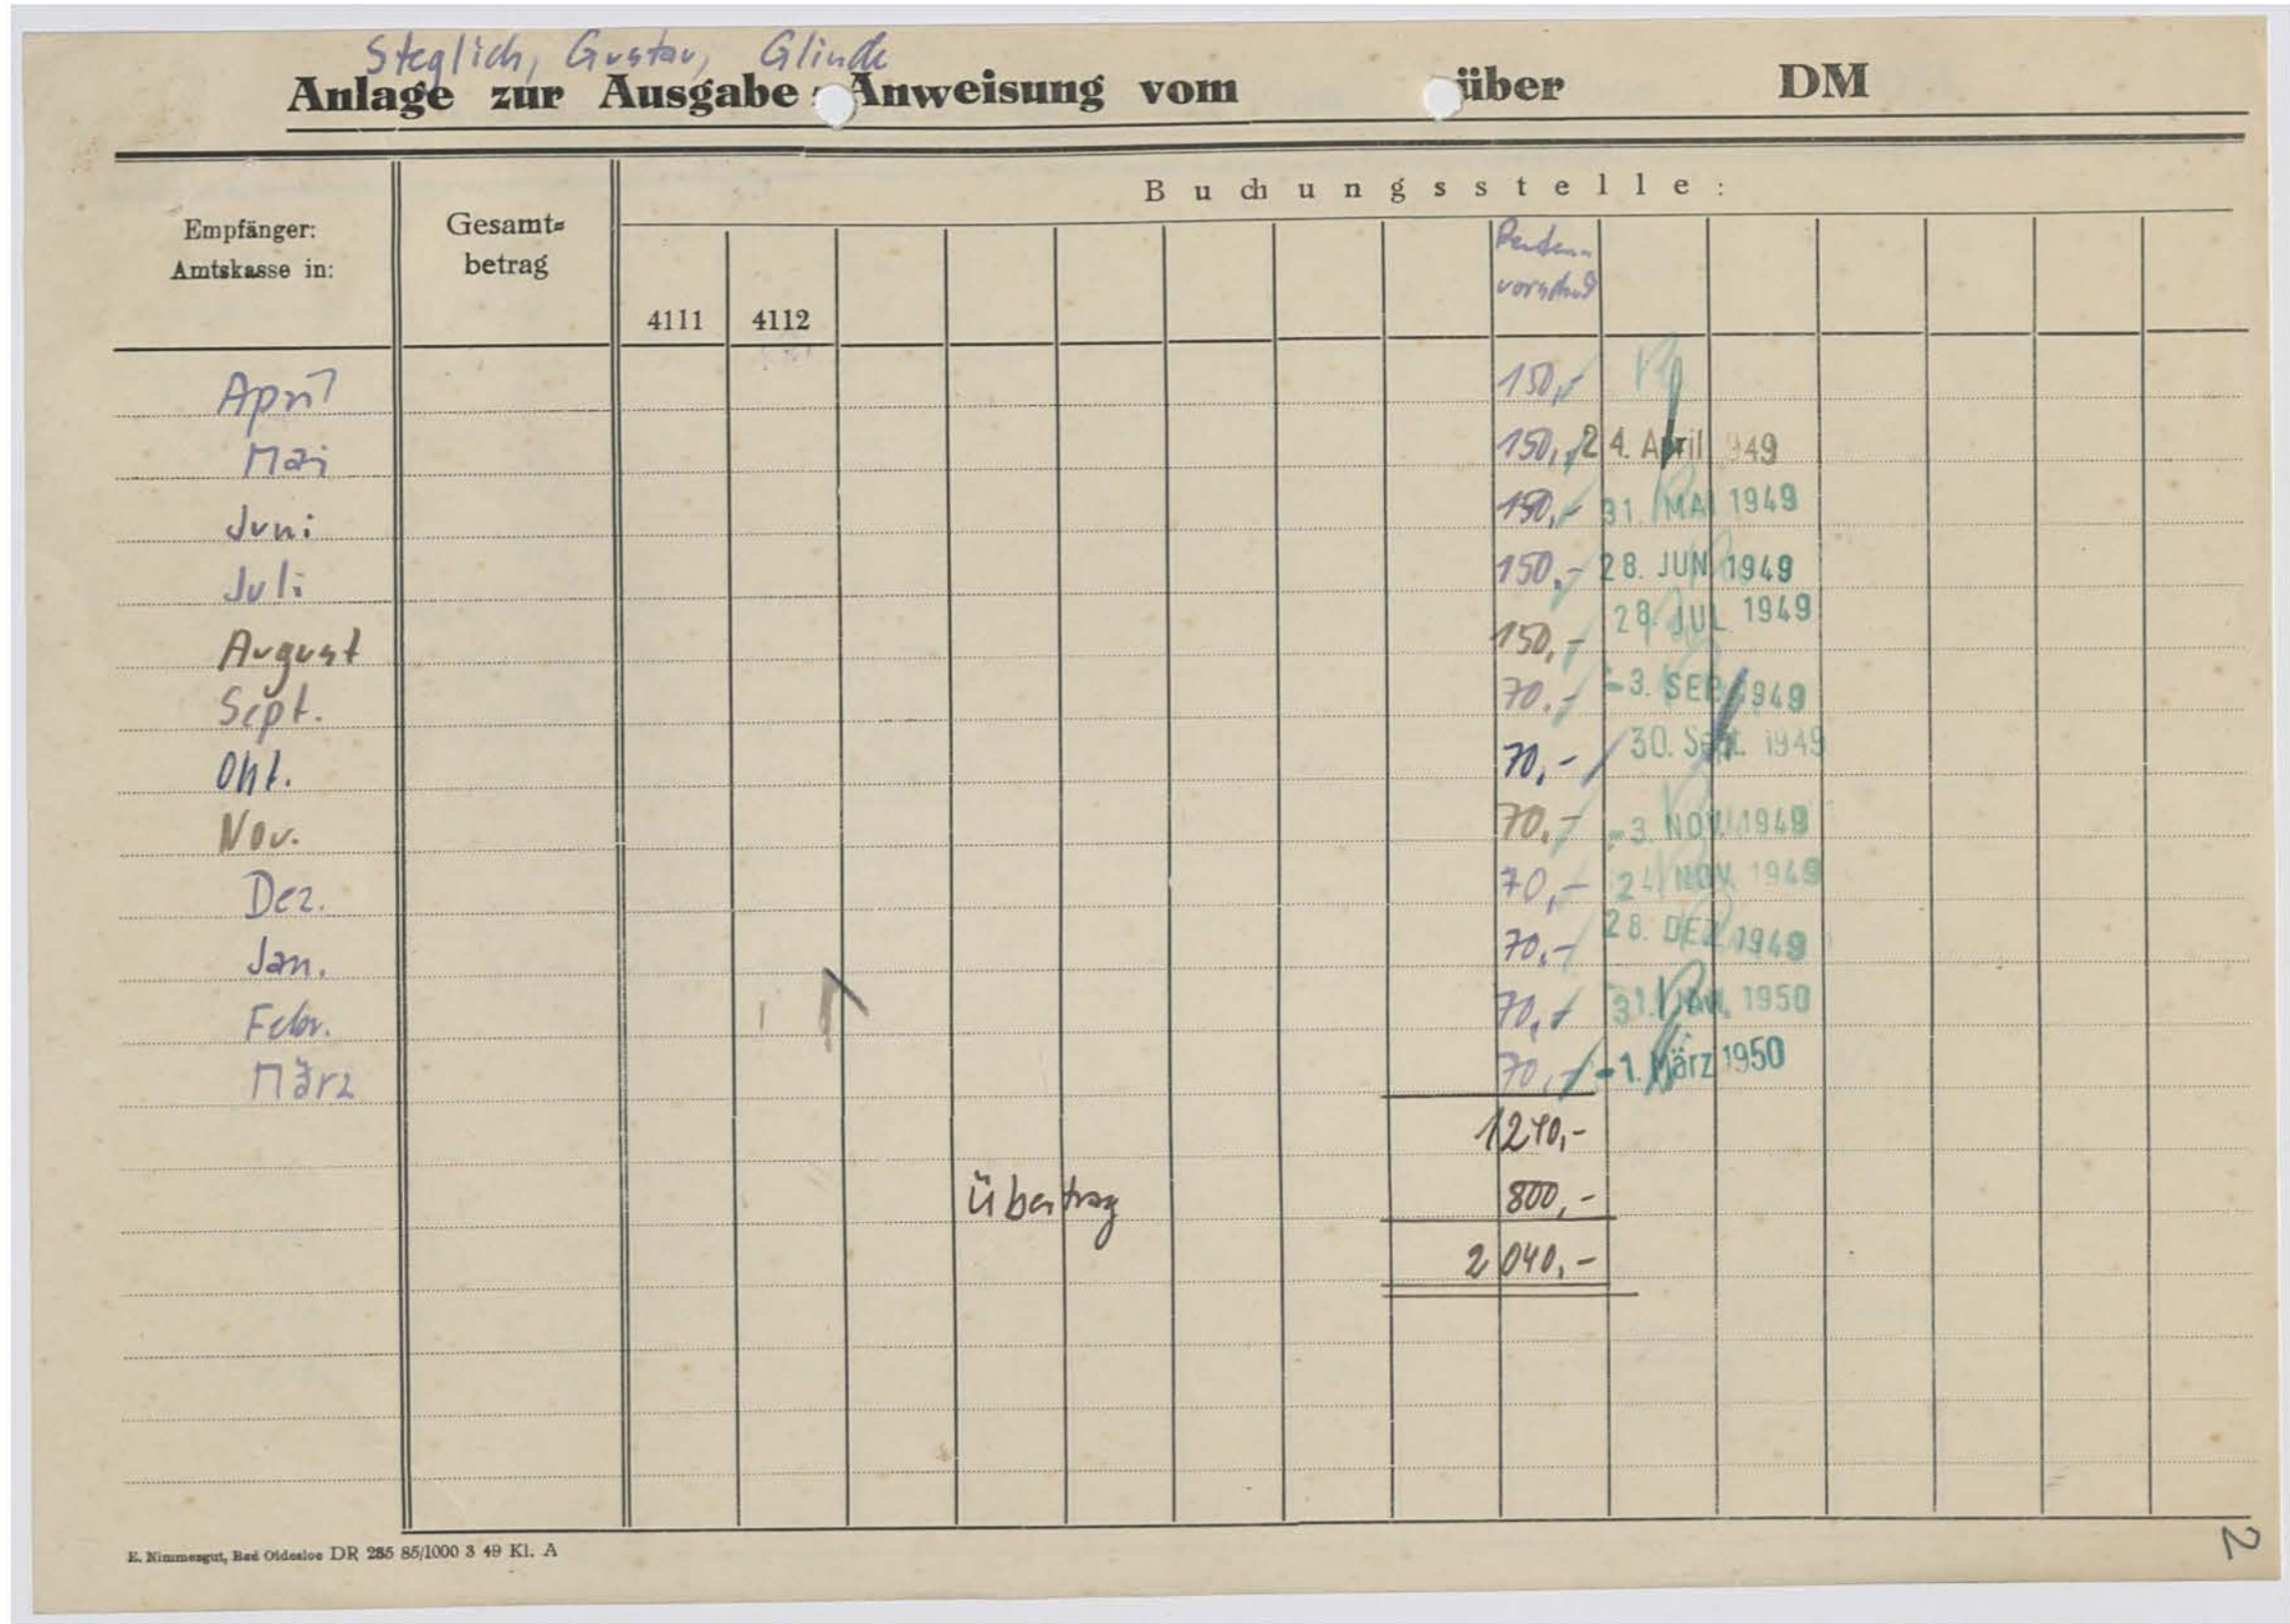 Steglich, Gustav, Glinde
Anlage zur Ausgabe-Anweisung vom über DM
Buchungsstelle:
Empfänger:
Amtskasse in:
Gesamt=
betrag
4111 4112
Renten-
vorschuß
April 150,-
Mai 150,- 24. April 1949
Juni 150,- 31. MAI 1949
Juli 150,- 28. JUN. 1949
August 150,- 28. JUL. 1949
Sept. 70,- -3. SEP. 1949
Okt. 70,- 30. Sept. 1949
Nov. 70,- -3. NOV. 1949
Dez. 70,- 24. NOV. 1949
Jan. 70,- 28. DEZ. 1949
Febr. 70,- 31. JAN. 1950
März 70,- -1. März 1950
1240,-
Übertrag 800,-
2040,-
E. Nimmergut, Bad Oldesloe DR 285 85/1000 3 49 Kl. A
2